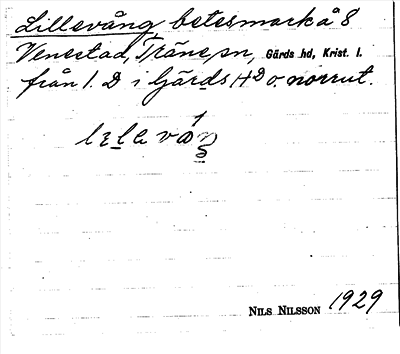 Lillevång betesmark å 8
Venestad, Träne sn, Gärds hd, Krist. l.
från 1. D i Gärds H D o. norrut.
NILS NILSSON 1929